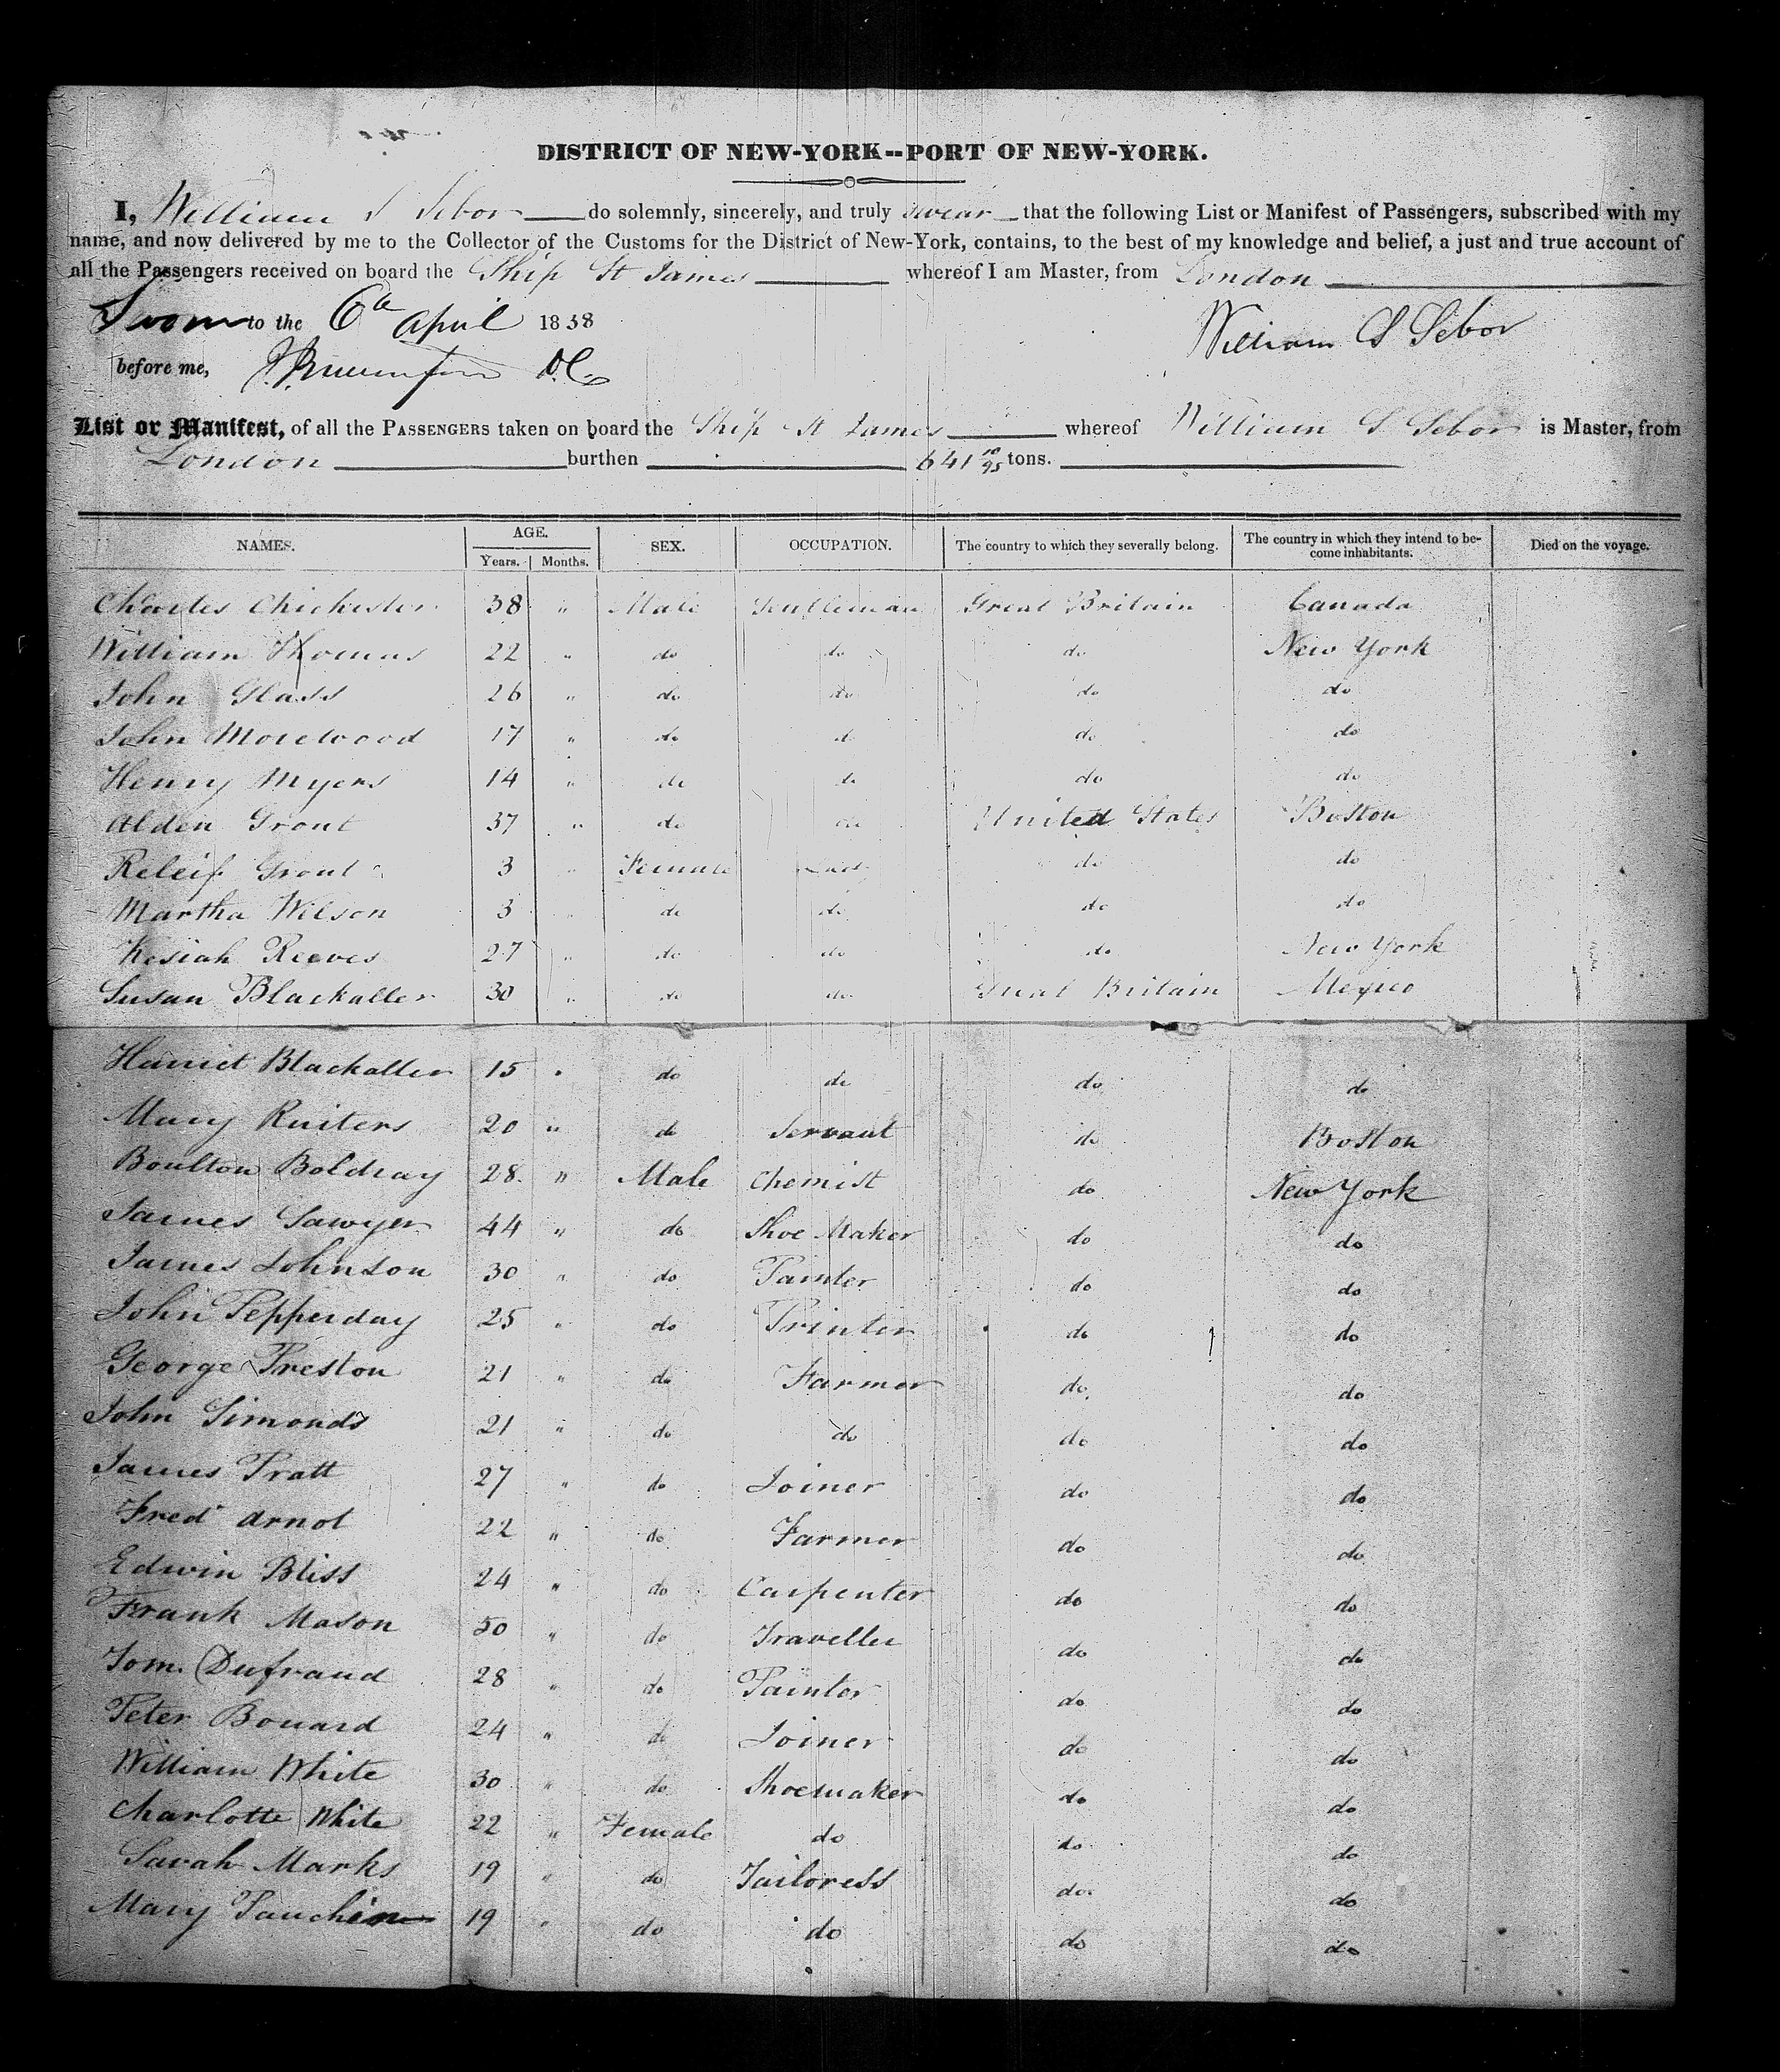 DISTRICT OF NEW-YORK--PORT OF NEW-YORK.
I, William S Sebor do solemnly, sincerely, and truly swear that the following List or Manifest of Passengers, subscribed with my
name, and now delivered by me to the Collector of the Customs for the District of New-York, contains, to the best of my knowledge and belief, a just and true account of
all the Passengers received on board the Ship St James whereof I am Master, from London
Sworn to the 6th April 1838
William S Sebor
before me, D.C.
List or Manifest, of all the PASSENGERS taken on board the Ship St James whereof William S Sebor is Master, from
London burthen 641 10/95 tons.
NAMES. AGE. Years. Months. SEX. OCCUPATION. The country to which they severally belong. The country in which they intend to become inhabitants. Died on the voyage.
Charles Chichester 38 " Male Gentleman Great Britain Canada
William Thomas 22 " do do do New York
John Glass 26 " do do do do
John Morewood 17 " do do do do
Henry Myers 14 " do do do do
Alden Grout 37 " do do United States Boston
Releif Grout 3 " Female do do
Martha Wilson 3 " do do do do
Kesiah Reeves 27 " do do do New York
Susan Blackaller 30 " do do Great Britain Mexico
Harriet Blackaller 15 " do do do do
Mary Ruiters 20 " do Servant do Boston
Boulton Boldray 28 " Male Chemist do New York
James Sawyer 44 " do Shoe Maker do do
James Johnson 30 " do Painter do do
John Pepperday 25 " do Printer do do
George Preston 21 " do Farmer do do
John Simonds 21 " do do do do
James Pratt 27 " do Joiner do do
Fred Arnot 22 " do Farmer do do
Edwin Bliss 24 " do Carpenter do do
Frank Mason 50 " do Traveller do do
Tom. Dufraud 28 " do Painter do do
Peter Bouard 24 " do Joiner do do
William White 30 " do Shoemaker do do
Charlotte White 22 " Female do do do
Sarah Marks 19 " do Tailoress do do
Mary 19 " do do do do